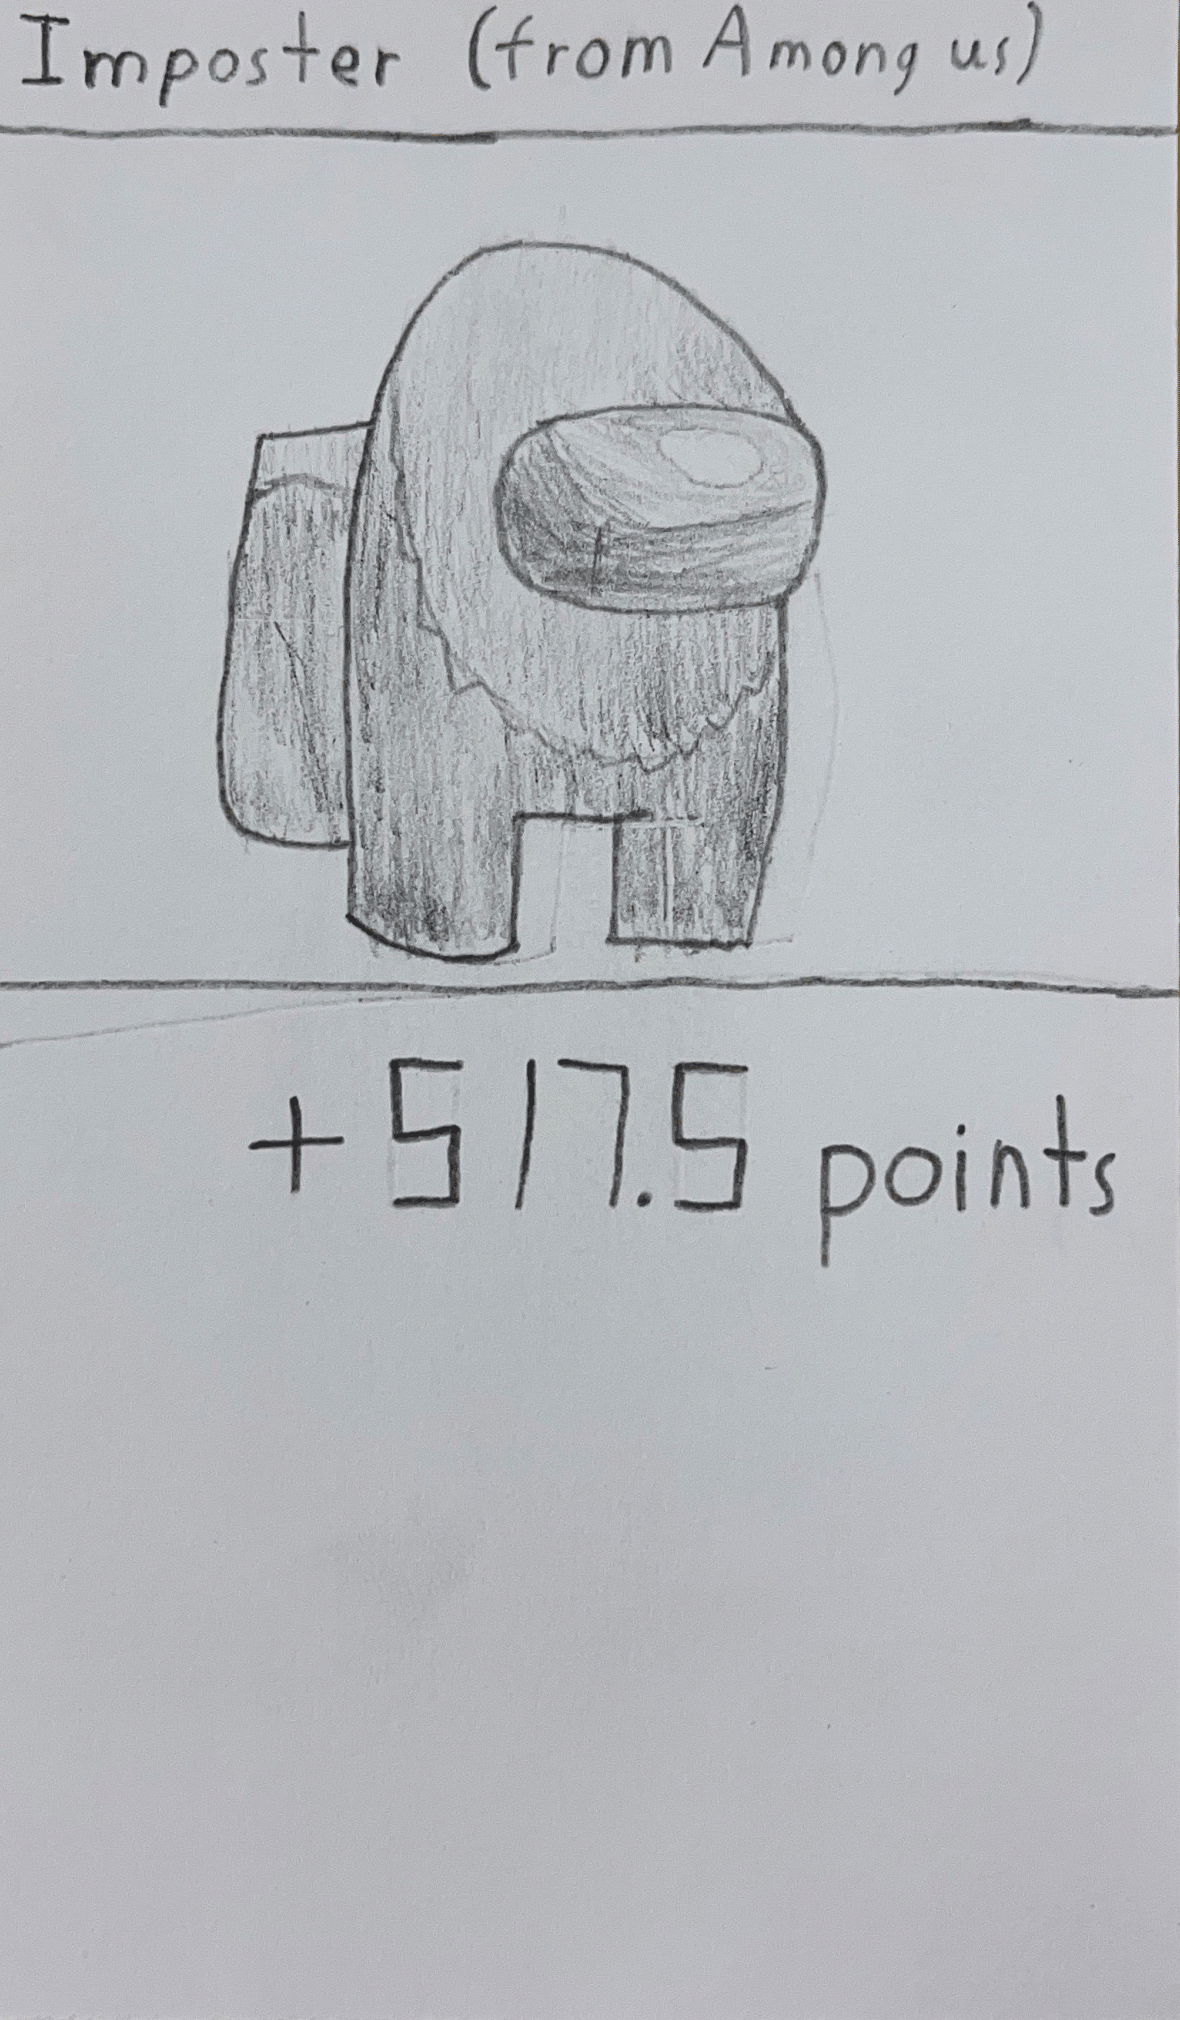 Imposter (from Among us)
+517.5 points